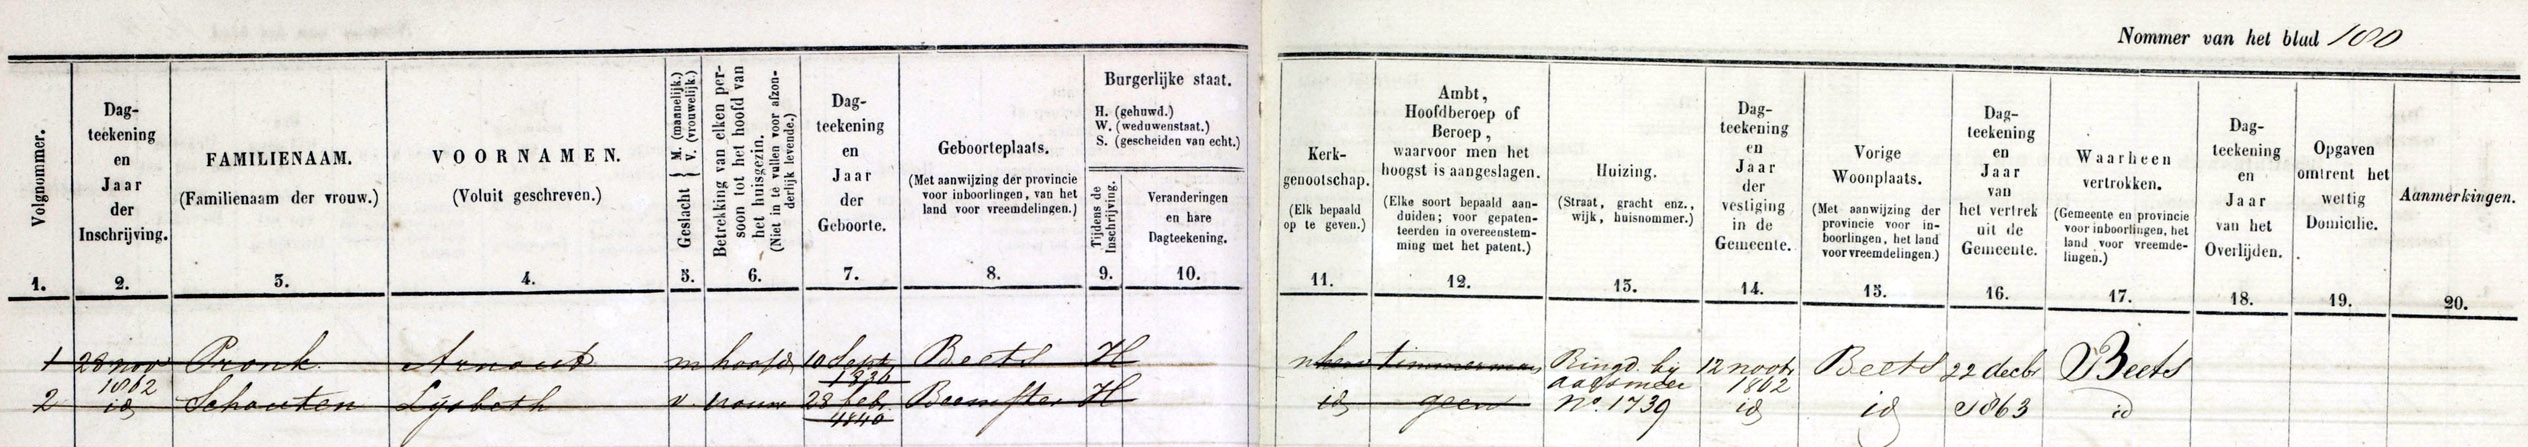 Nommer van het blad 180
Volgnommer.
1.
Dag-
teekening
en
Jaar
der
Inschrijving.
2.
FAMILIENAAM.
(Familienaam der vrouw.)
3.
VOORNAMEN.
(Voluit geschreven.)
4.
Geslacht { M. (mannelijk.)
V. (vrouwelijk.)
5.
Betrekking van elken per-
soon tot het hoofd van
het huisgezin.
(Niet in te vullen voor afzon-
derlijk levende.)
6.
Dag-
teekening
en
Jaar
der
Geboorte.
7.
Geboorteplaats.
(Met aanwijzing der provincie
voor inboorlingen, van het
land voor vreemdelingen.)
8.
Burgerlijke staat.
H. (gehuwd.)
W. (weduwenstaat.)
S. (gescheiden van echt.)
Tijdens de
Inschrijving.
9.
Veranderingen
en hare
Dagteekening.
10.
Kerk-
genootschap.
(Elk bepaald
op te geven.)
11.
Ambt,
Hoofdberoep of
Beroep,
waarvoor men het
hoogst is aangeslagen.
(Elke soort bepaald aan-
duiden; voor gepaten-
teerden in overeenstem-
ming met het patent.)
12.
Huizing.
(Straat, gracht enz.,
wijk, huisnommer.)
13.
Dag-
teekening
en
Jaar
der
vestiging
in de
Gemeente.
14.
Vorige
Woonplaats.
(Met aanwijzing der
provincie voor in-
boorlingen, het land
voor vreemdelingen.)
15.
Dag-
teekening
en
Jaar
van
het vertrek
uit de
Gemeente.
16.
Waarheen
vertrokken.
(Gemeente en provincie
voor inboorlingen, het
land voor vreemde-
lingen.)
17.
Dag-
teekening
en
Jaar
van het
Overlijden.
18.
Opgaven
omtrent het
wettig
Domicilie.
19.
Aanmerkingen.
20.
1 28 nov Pronk Arnout m hoofd 10 Sept Beets H nherv timmerman Ringd. bij 12 novbr Beets 22 decbr Beets
1862 1836 aalsmeer 1862
2 id Schouten Lijsbeth v vrouw 28 feb. Beemster H id geen No. 1739 id id 1863 id
1840